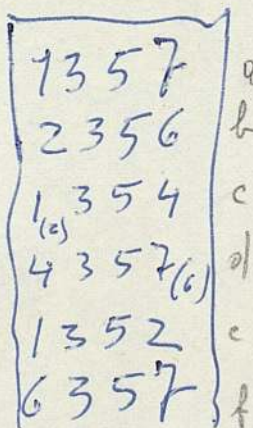 1357 a
2356 b
1(6) 354 c
4357(6) d
1352 e
6357 f